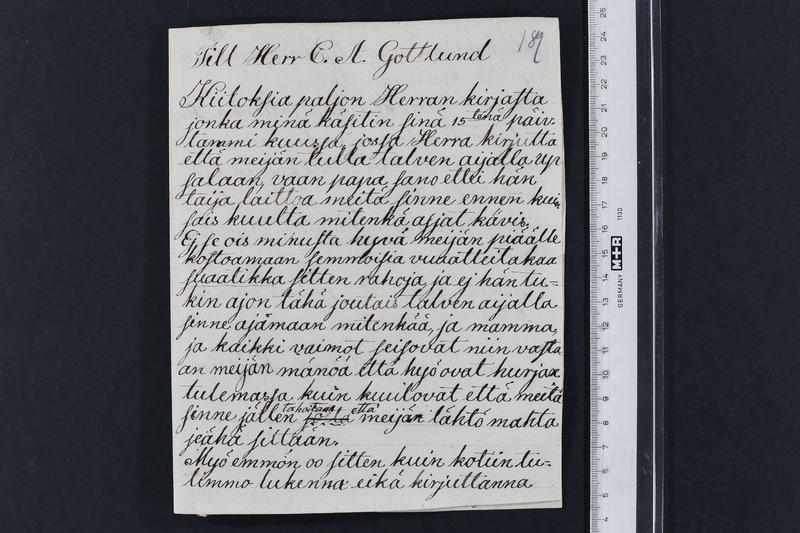 189
Till Herr C. A. Gottlund
Kiitoksia paljon Herran kirjasta
jonka minä käsitin sinä 15 tenä päiv.
tammi kuussa, jossa Herra kirjutta
että meijän tulla talven aijalla up
salaan, vaan papa sano ettei hän
taija laittoa meitä sinne ennen kuin
sais kuulta mitenkä asjat kävis.
Ei se ois minusta hyvä meijän piäälle
kostoamaan semmoisia vuaatteita kaa
suaalikka sitten rahoja, ja ej hän tu=
kin ajon tähä joutais talven aijalla
sinne ajamaan mitenkää, ja mamma,
ja kaikki vaimot seisovat niin vasta
an meijän mänöä että hyö ovat hurjax
tulemassa kuin kuulovat että meitä
sinne jällen tahotaan että meijän lähtö mahta
jeähä sillään.
Myö emmön oo sitten kuin kotiin tu=
limmo lukenna eikä kirjuttanna
25
24
23
22
21
20
19
18
17
16
15
14
13
12
11
10
9
8
7
6
5
4
1130
M+R
GERMANY